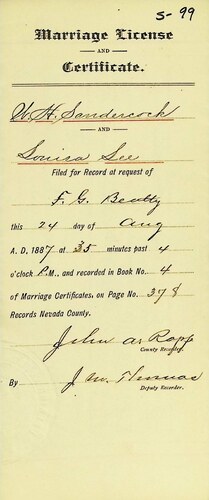 S-99
Marriage License
AND
Certificate.
W. H. Sandercock
AND
Louisa See
Filed for Record at request of
F. G. Beatty
this 24 day of Aug
A. D. 1887 at 35 minutes past 4
o'clock P.M., and recorded in Book No. 4
of Marriage Certificates, on Page No. 378
Records Nevada County.
John A. Rapp
County Recorder.
By J. M. Thomas
Deputy Recorder.